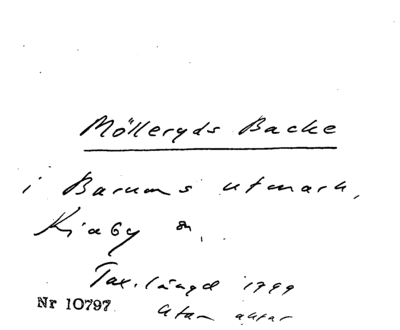 Mölleryds Backe
i Barums utmark,
Kiaby sn.
Tax.längd 1999
Nr 10797 utan antar